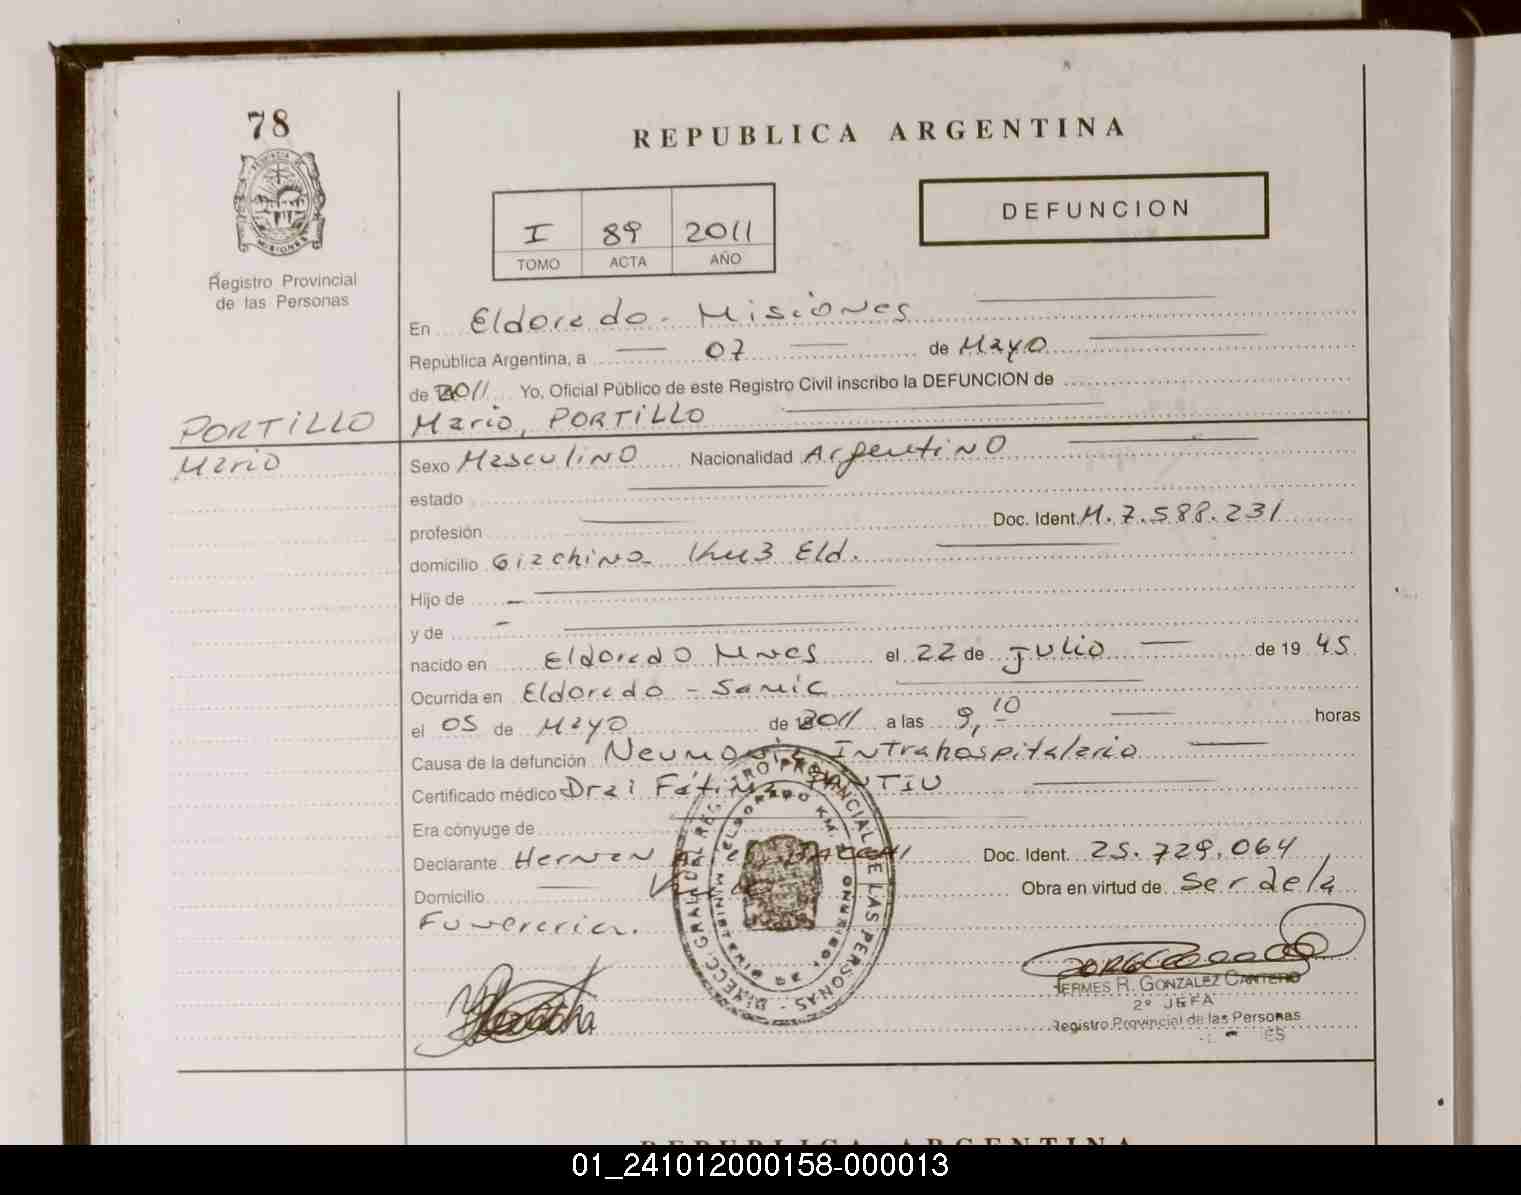 78
REPUBLICA ARGENTINA
DEFUNCION
I 89 2011
TOMO ACTA AÑO
Registro Provincial
de las Personas
En Eldorado - Misiones
República Argentina, a 07 de Mayo
de 2011 Yo, Oficial Público de este Registro Civil inscribo la DEFUNCION de
PORTILLO
Mario, PORTILLO
Mario
Sexo Masculino Nacionalidad Argentino
estado
profesión Doc. Ident. M. 7.588.231
domicilio Giachino Km3 Eld.
Hijo de
y de
nacido en Eldorado Mnes el 22 de Julio de 1945
Ocurrida en Eldorado - Samic
el 05 de Mayo de 2011 a las 9,10 horas
Causa de la defunción Neumonia Intrahospitalaria
Certificado médico Dra: Fátima
Era cónyuge de
Declarante Hernan Doc. Ident. 25.729.064
Domicilio Obra en virtud de Ser de la
Funeraria.
DIRECC. GRAL. DEL REGISTRO PROVINCIAL DE LAS PERSONAS
MINISTERIO DE GOBIERNO
ELDORADO KM.
HERMES R. GONZALEZ CANTERO
2º JEFA
Registro Provincial de las Personas
REPUBLICA ARGENTINA
01_241012000158-000013